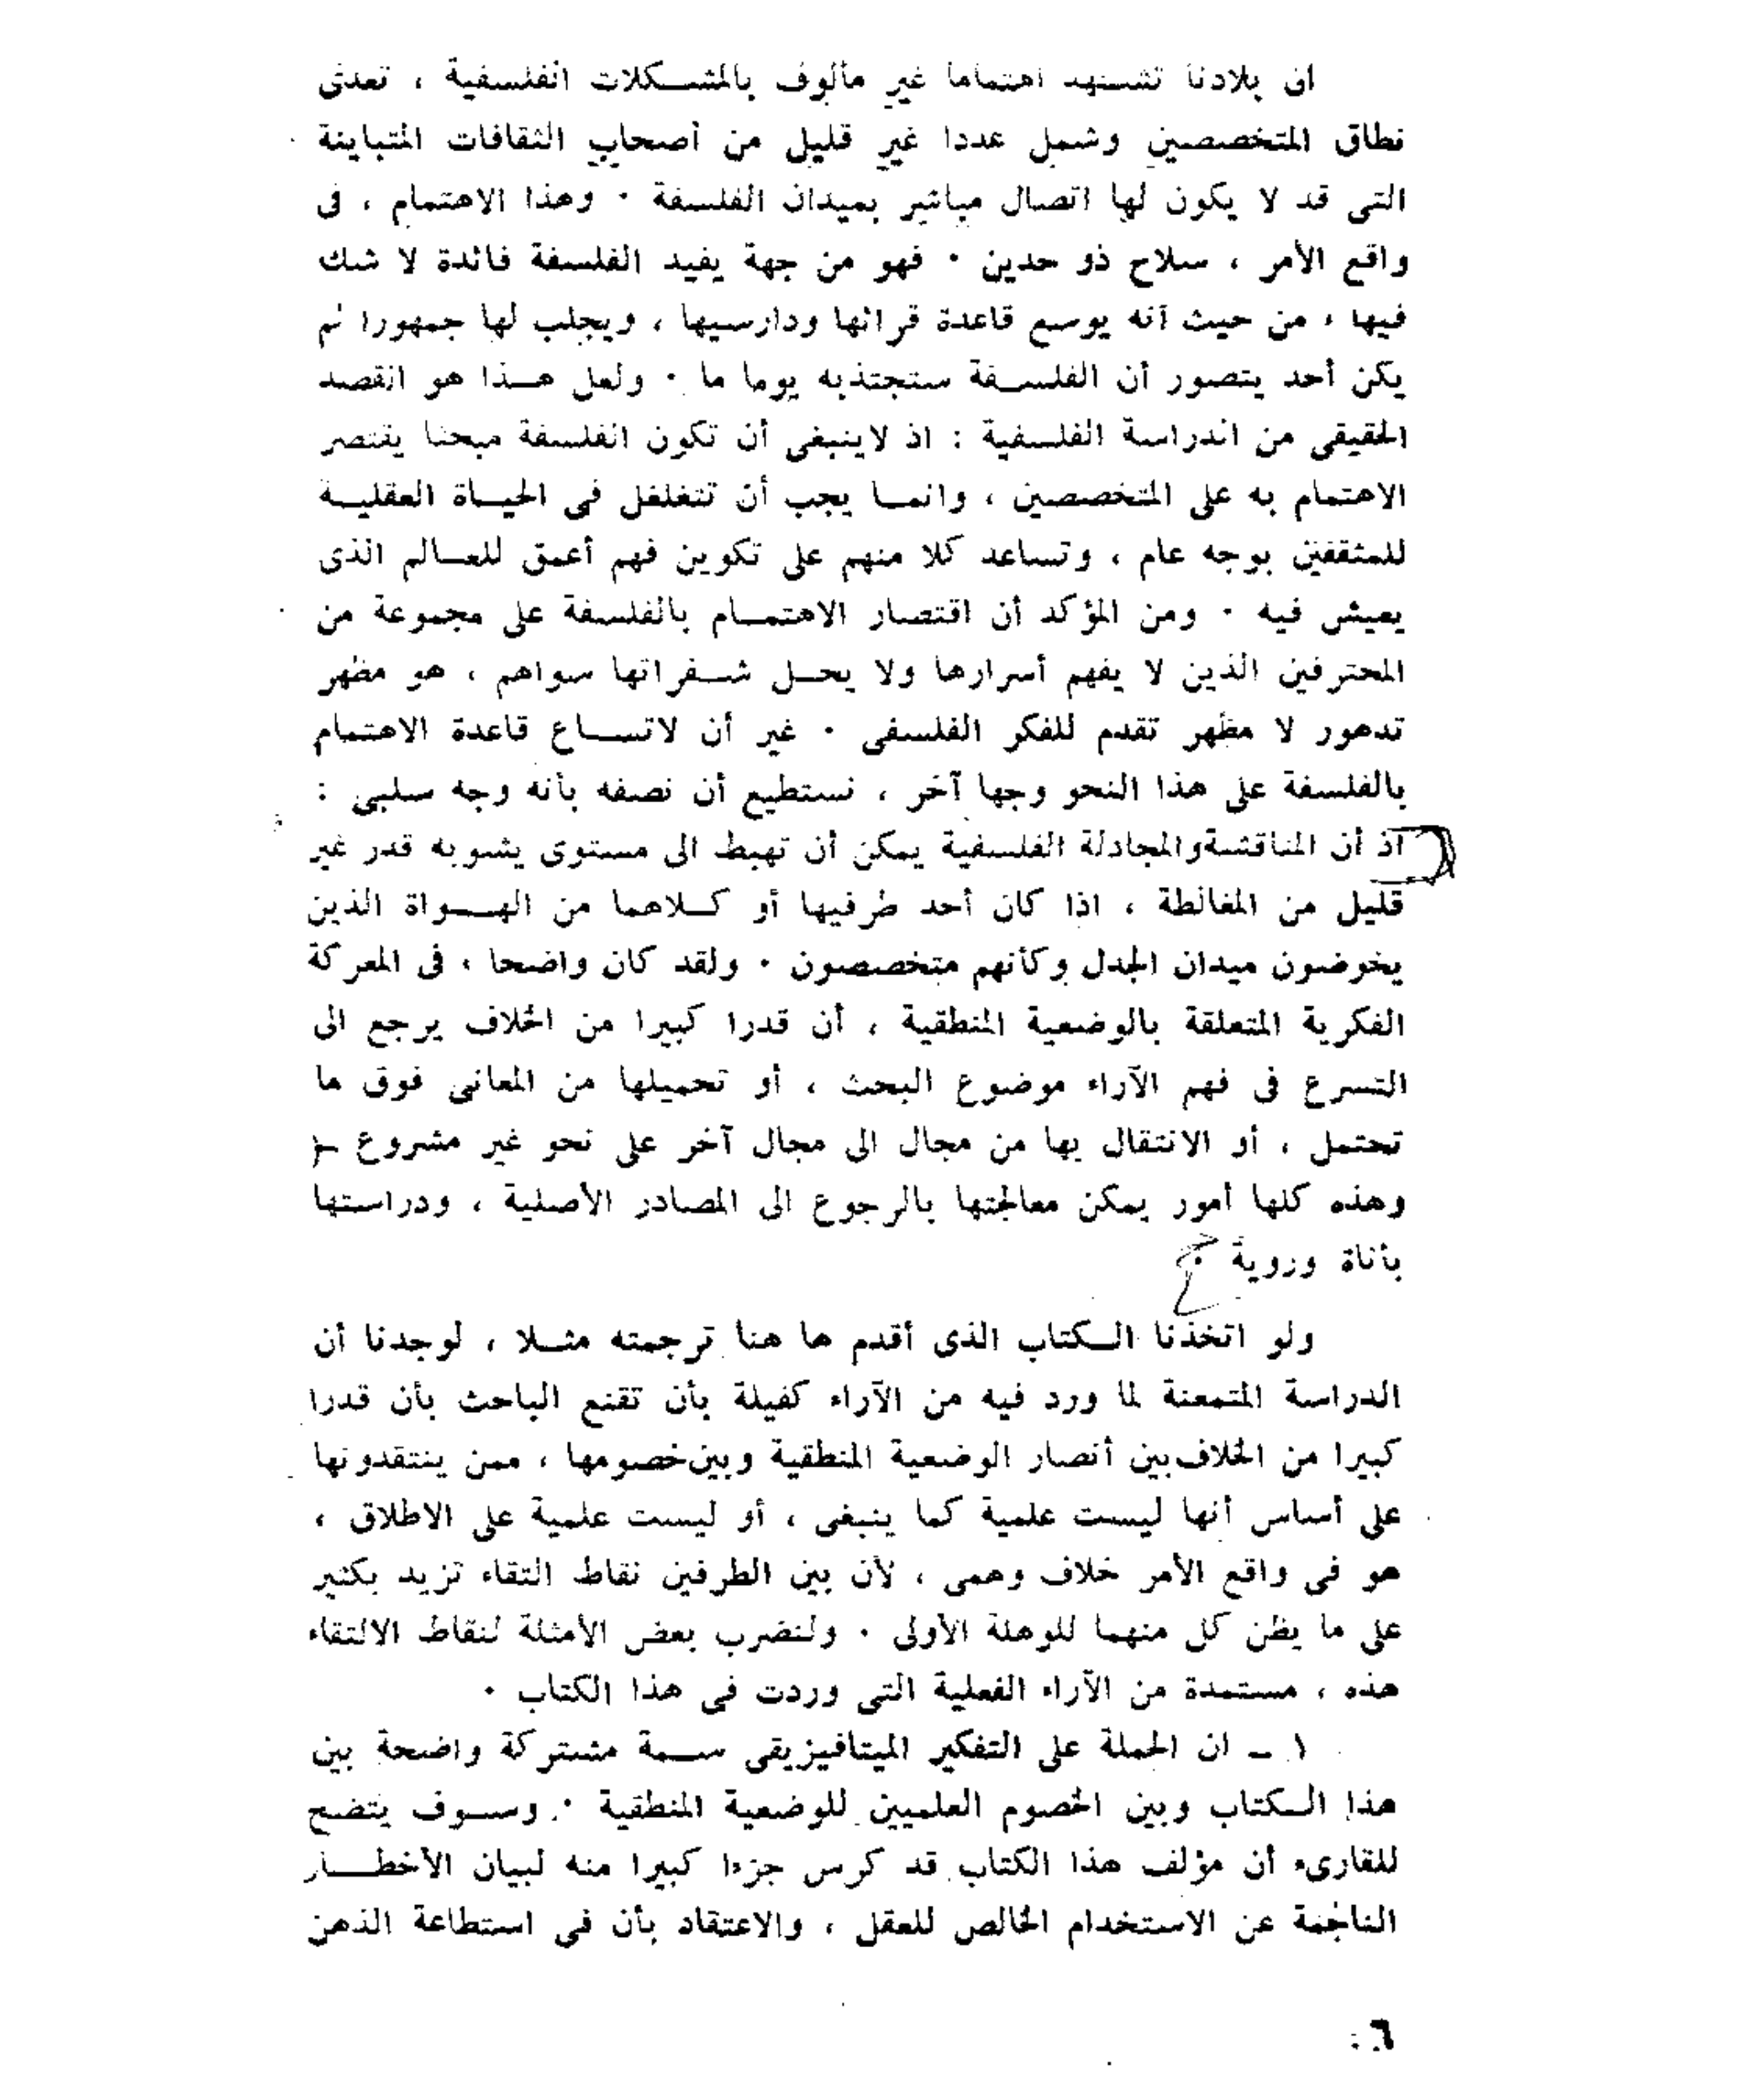 ان بلادنا تشهد اهتماما غير مألوف بالمشكلات الفلسفية ، تعدى
نطاق المتخصصين وشمل عددا غير قليل من أصحاب الثقافات المتباينة
التى قد لا يكون لها اتصال مباشر بميدان الفلسفة . وهذا الاهتمام ، فى
واقع الأمر ، سلاح ذو حدين . فهو من جهة يفيد الفلسفة فائدة لا شك
فيها ، من حيث أنه يوسع قاعدة قرائها ودارسيها ، ويجلب لها جمهورا لم
يكن أحد يتصور أن الفلسفة ستجتذبه يوما ما . ولعل هذا هو القصد
الحقيقى من الدراسة الفلسفية : اذ لاينبغى أن تكون الفلسفة مبحثا يقتصر
الاهتمام به على المتخصصين ، وانما يجب أن تتغلغل فى الحياة العقلية
للمثقفين بوجه عام ، وتساعد كلا منهم على تكوين فهم أعمق للعالم الذى
يعيش فيه . ومن المؤكد أن اقتصار الاهتمام بالفلسفة على مجموعة من
المحترفين الذين لا يفهم أسرارها ولا يحل شفراتها سواهم ، هو مظهر
تدهور لا مظهر تقدم للفكر الفلسفى . غير أن لاتساع قاعدة الاهتمام
بالفلسفة على هذا النحو وجها آخر ، نستطيع أن نصفه بأنه وجه سلبى :
اذ أن المناقشة والمجادلة الفلسفية يمكن أن تهبط الى مستوى يشوبه قدر غير
قليل من المغالطة ، اذا كان أحد طرفيها أو كلاهما من الهواة الذين
يخوضون ميدان الجدل وكأنهم متخصصون . ولقد كان واضحا ، فى المعركة
الفكرية المتعلقة بالوضعية المنطقية ، أن قدرا كبيرا من الخلاف يرجع الى
التسرع فى فهم الآراء موضوع البحث ، أو تحميلها من المعانى فوق ما
تحتمل ، أو الانتقال بها من مجال الى مجال آخر على نحو غير مشروع -
وهذه كلها أمور يمكن معالجتها بالرجوع الى المصادر الأصلية ، ودراستها
بأناة وروية .
ولو اتخذنا الكتاب الذى أقدم ها هنا ترجمته مثلا ، لوجدنا أن
الدراسة المتمعنة لما ورد فيه من الآراء كفيلة بأن تقنع الباحث بأن قدرا
كبيرا من الخلاف بين أنصار الوضعية المنطقية وبين خصومها ، ممن ينتقدونها
على أساس أنها ليست علمية كما ينبغى ، أو ليست علمية على الاطلاق ،
هو فى واقع الأمر خلاف وهمى ، لأن بين الطرفين نقاط التقاء تزيد بكثير
على ما يظن كل منهما للوهلة الأولى . ولنضرب بعض الأمثلة لنقاط الالتقاء
هذه ، مستمدة من الآراء الفعلية التى وردت فى هذا الكتاب .
١ ـ ان الحملة على التفكير الميتافيزيقى سمة مشتركة واضحة بين
هذا الكتاب وبين الخصوم العلميين للوضعية المنطقية . وسوف يتضح
للقارىء أن مؤلف هذا الكتاب قد كرس جزءا كبيرا منه لبيان الأخطار
الناجمة عن الاستخدام الخالص للعقل ، والاعتقاد بأن فى استطاعة الذهن
٦